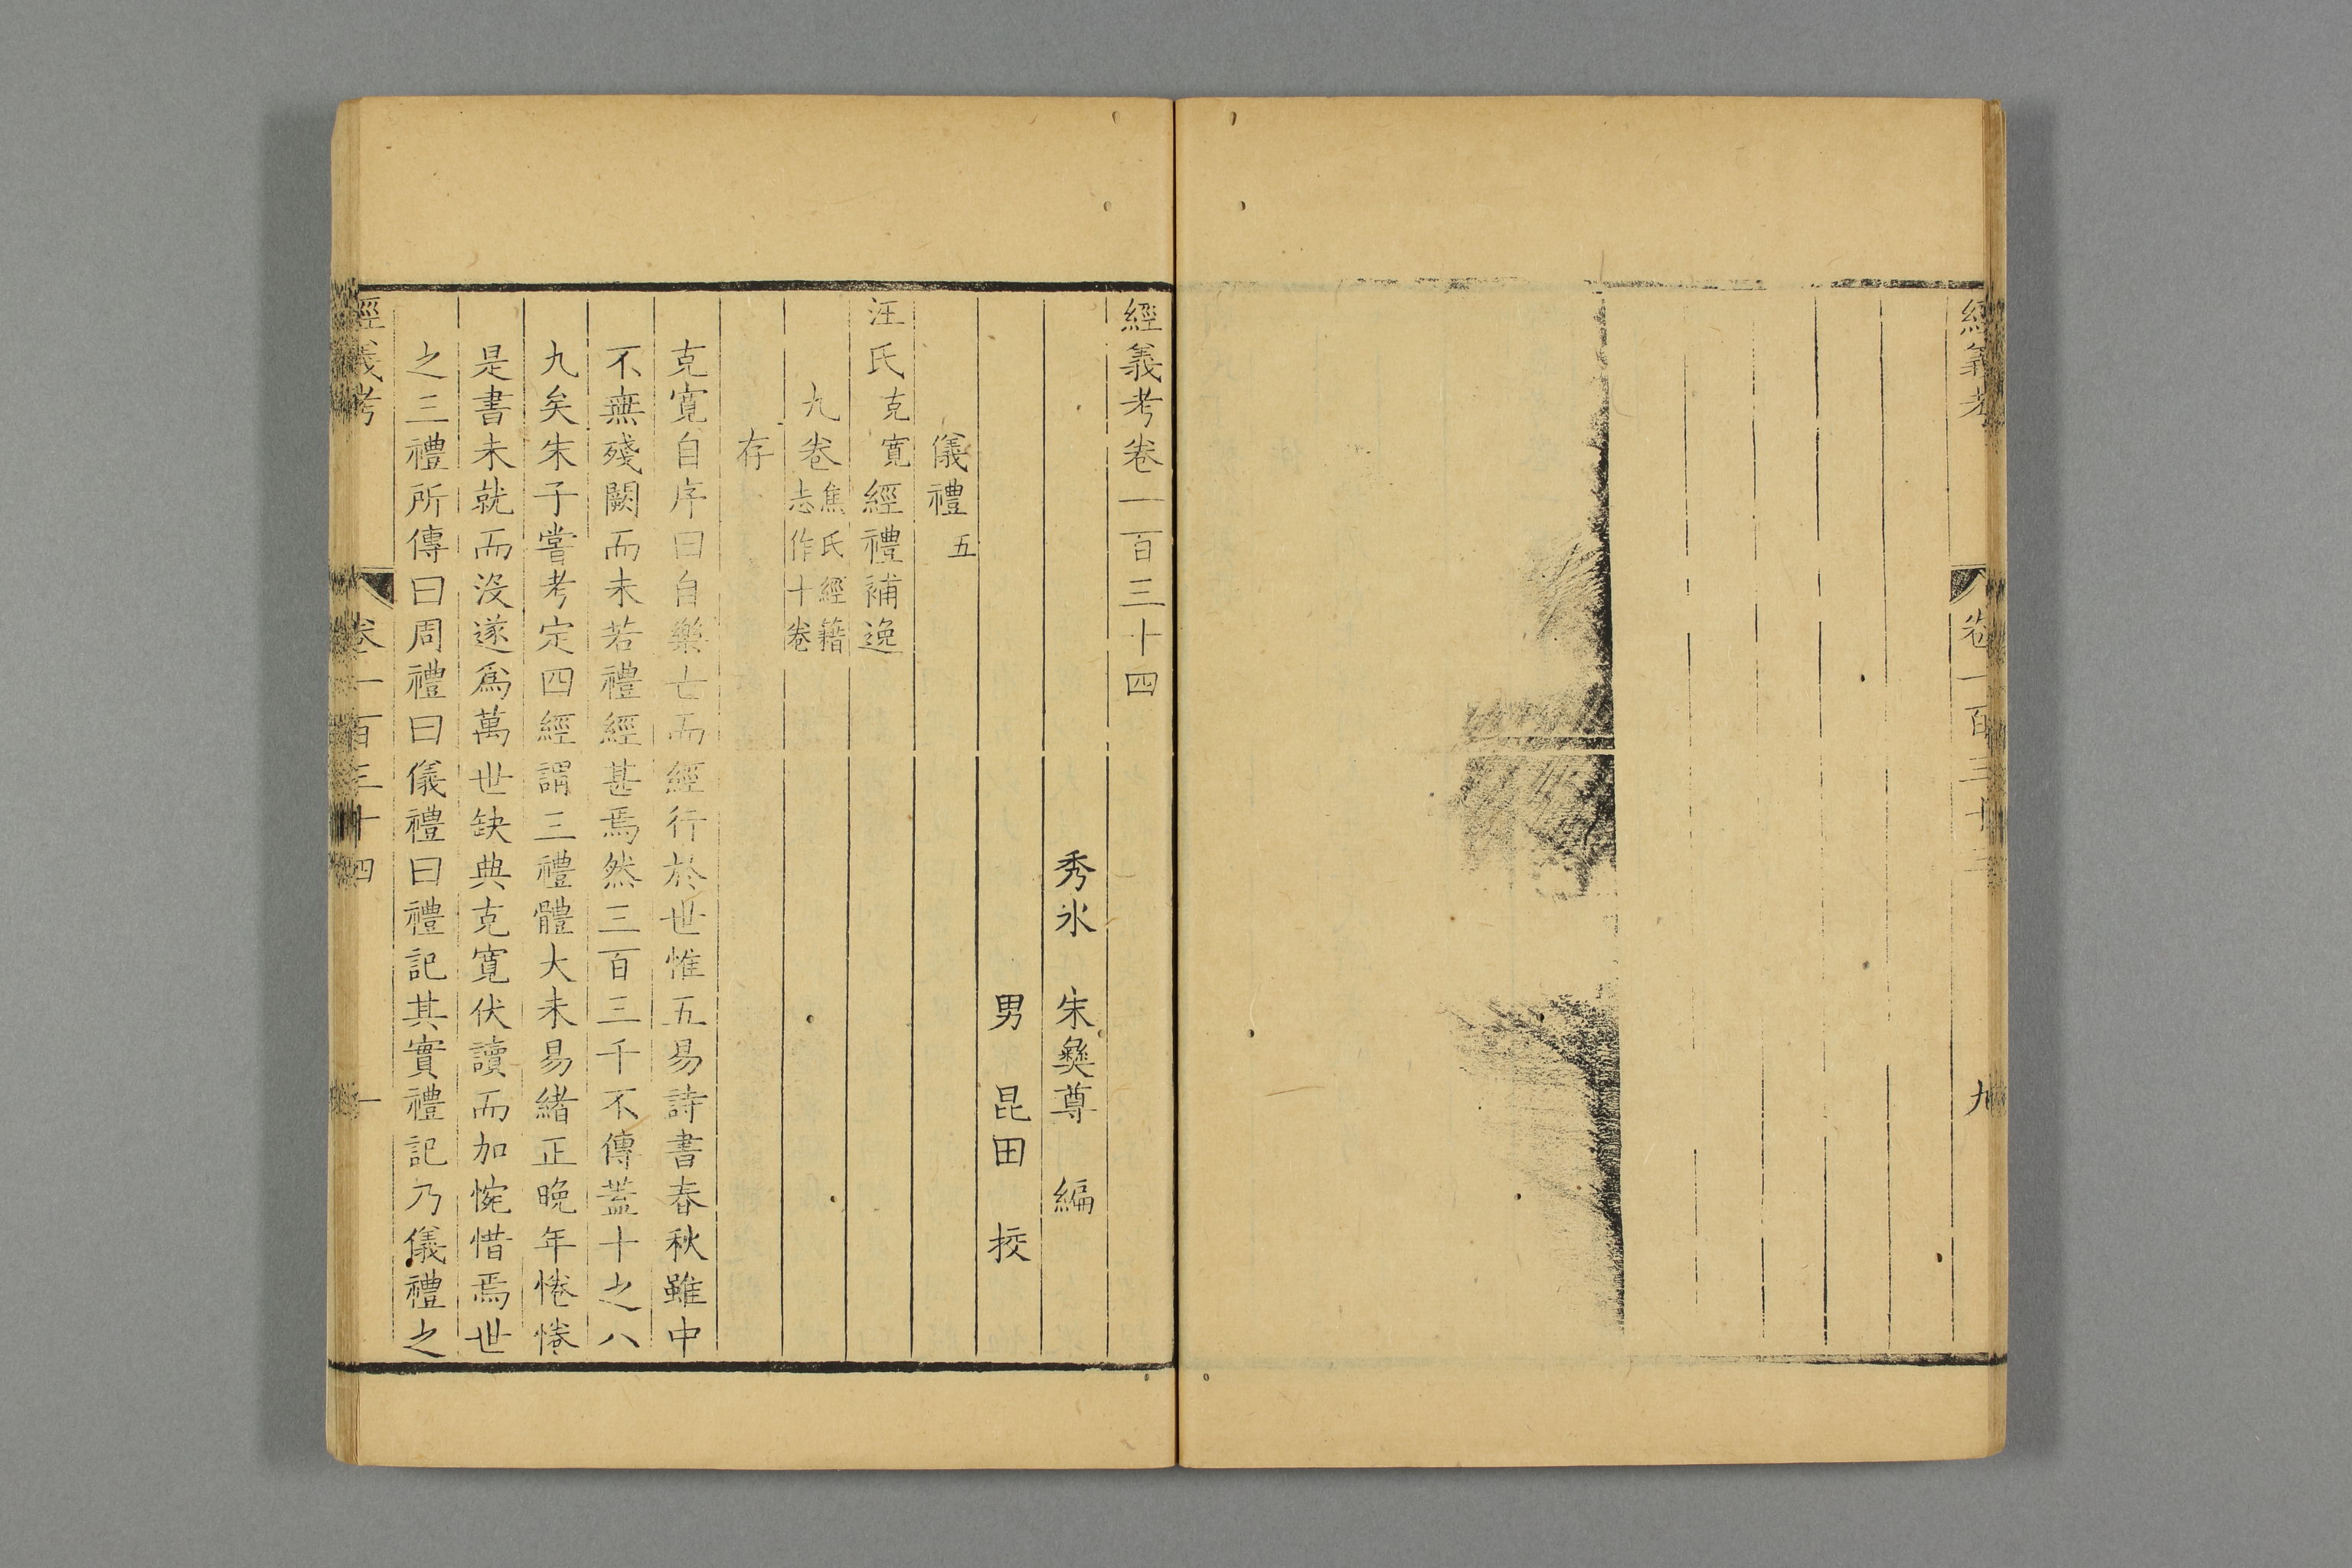 經義考 卷一百三十三 九
經義考卷一百三十四
秀水 朱彝尊 編
男 昆田 挍
儀禮五
汪氏克寬經禮補逸
九卷焦氏經籍志作十卷
存
克寬自序曰自樂亡而經行於世惟五易詩書春秋雖中
不無殘闕而未若禮經甚焉然三百三千不傳蓋十之八
九矣朱子嘗考定四經謂三禮體大未易緒正晚年惓惓
是書未就而沒遂爲萬世缺典克寬伏讀而加惋惜焉世
之三禮所傳曰周禮曰儀禮曰禮記其實禮記乃儀禮之
經義考 卷一百三十四 一